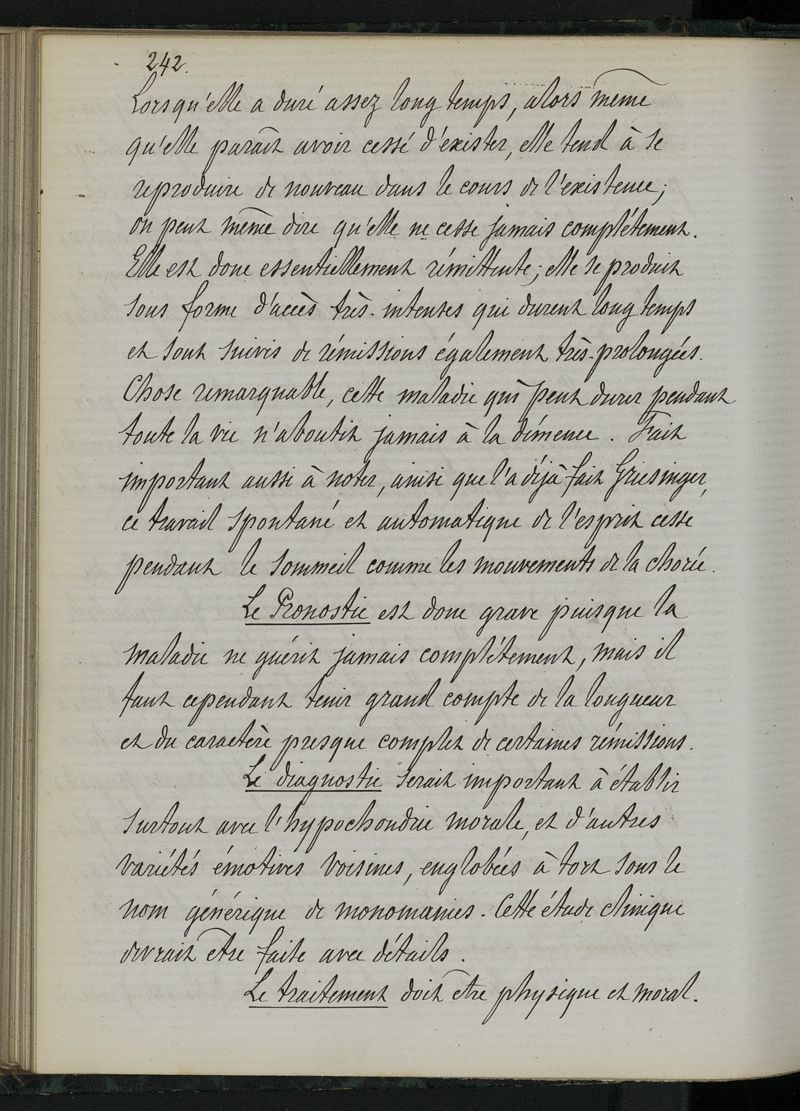 242.
Lorsqu'elle a duré assez long temps, alors même
qu'elle paraît avoir cessé d'exister, elle tend à se
reproduire de nouveau dans le cours de l'existence;
on peut même dire qu'elle ne cesse jamais complétement.
Elle est donc essentiellement rémittente; elle se produit
sous forme d'accès très-intenses qui durent long temps
et sont suivis de rémissions également très-prolongées.
Chose remarquable, cette maladie qui peut durer pendant
toute la vie n'aboutit jamais à la démence. Fait
important aussi à noter, ainsi que l'a déjà fait Griesinger,
ce travail spontané et automatique de l'esprit cesse
pendant le sommeil comme les mouvements de la chorée.
Le Pronostic est donc grave puisque la
maladie ne guérit jamais complétement, mais il
faut cependant tenir grand compte de la longueur
et du caractère presque complet de certaines rémissions.
Le diagnostic serait important à établir
surtout avec l'hypochondrie morale, et d'autres
variétés émotives voisines, englobées à tort sous le
nom générique de monomanies. Cette étude clinique
devrait être faite avec détails.
Le traitement doit être physique et moral.